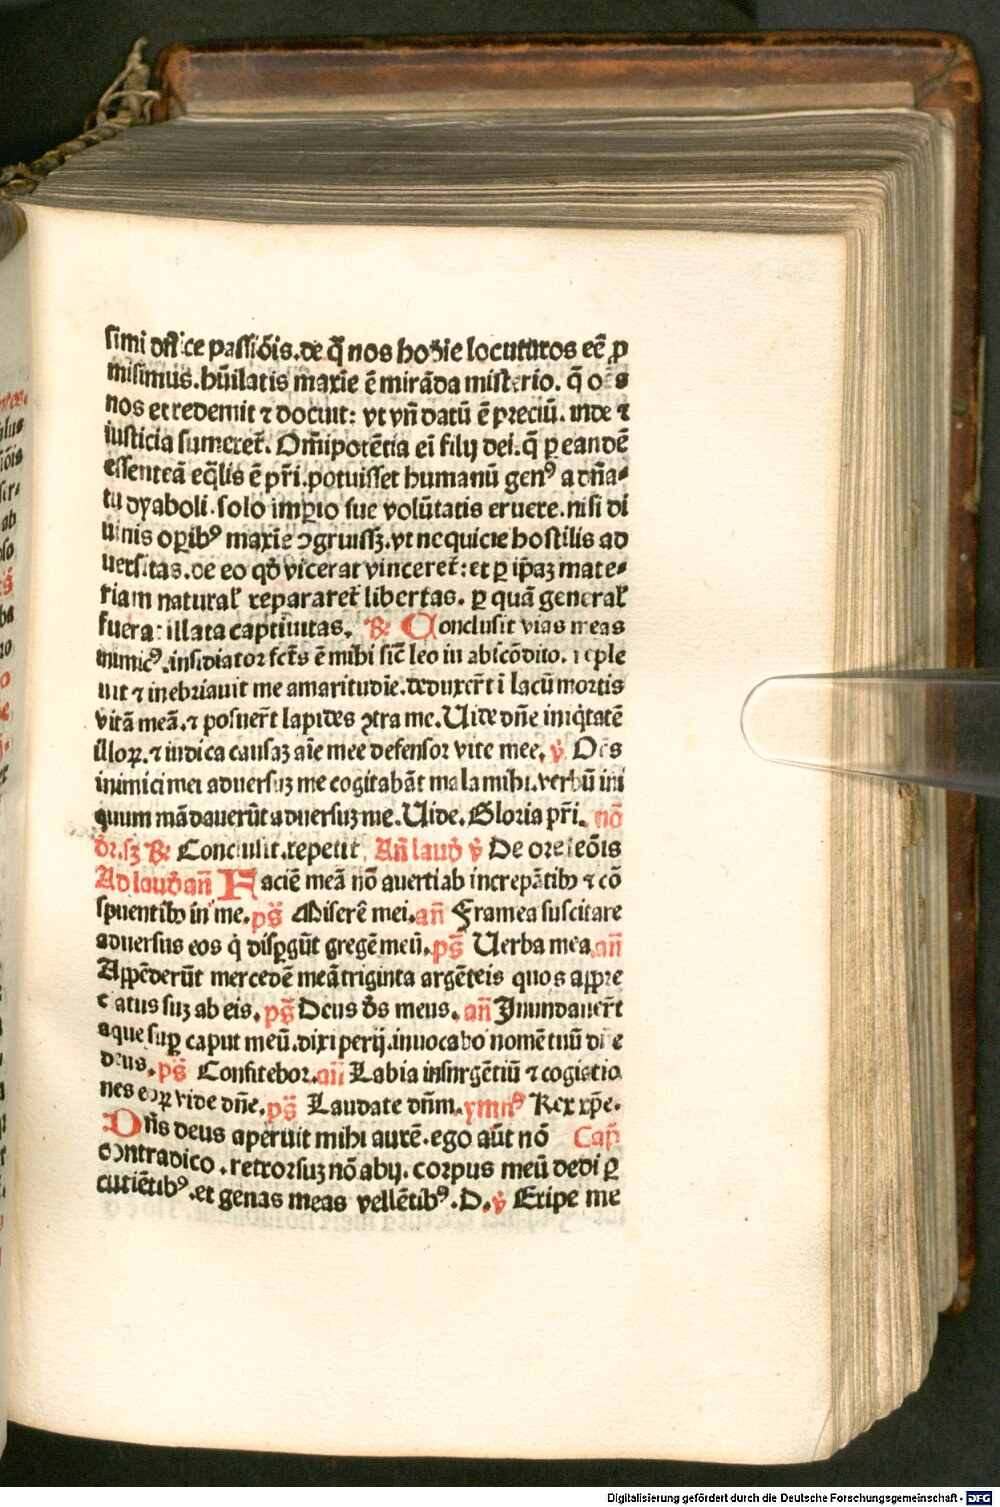 simi dñice passiõis.de q̃ nos hodie locuturos eẽ ꝓ
misimus.hũilatis maxĩe ẽ mirãda misterio. q̃ oẽs
nos et redemit ⁊ docuit: vt vñ datũ ẽ preciũ. inde ⁊
iusticia sumeret̃. Om̃ipotẽtia eĩ filij dei.q̃ ꝑ eandẽ
essentẽã eq̃lis ẽ pr̃i.potuisset humanũ genꝰ a dña⸗
tu dyaboli.solo imꝑio sue volũtatis eruere.nisi di
uinis oꝑibꝰ maxĩe ɔgruissꝫ.vt nequicie hostilis ad
uersitas.de eo qď vicerat vinceret̃:et ꝑ ip̃aꝫ mate⸗
riam natural̃ repararet̃ libertas. ꝑ quã general̃
fuerat illata captiuitas. ℟ Conclusit vias meas
inimicꝰ.insidiator fct̃s ẽ mihi sic̃ leo in abscõdito. reple
uit ⁊ inebriauit me amaritudĩe.deduxer̃t ĩ lacũ mortis
vitã meã.⁊ posuer̃t lapides ɔtra me.Uide dñe iniq̃tatẽ
illoꝝ.⁊ iudica causaꝫ aĩe mee defensor vite mee. ℣ Oẽs
inimici mei aduersuꝫ me cogitabãt mala mihi.verbũ ini
quum mãdauerũt aduersuꝫ me.Uide. Gloria pr̃i. nõ
dr̃.sꝫ ℟ Conclusit.repetit. Añ laud̃ ℣ De ore leõis
Ad laud̃ añ Faciẽ meã nõ auerti ab increpãtibꝰ ⁊ cõ
spuentibꝰ in me.ps̃ Miserẽ mei.añ Framea suscitare
aduersus eos q̇ disꝑgũt gregẽ meũ.ps̃ Uerba mea.añ
Appẽderũt mercedẽ meã triginta argẽteis quos appre
ciatus suꝫ ab eis.ps̃ Deus ds̃ meus. añ Inundauer̃t
aque suꝑ caput meũ.dixi perij.inuocabo nomẽ tuũ dñe
deus.ps̃ Confitebor.añ Labia insurgẽtiũ ⁊ cogitatio
nes eoꝝ vide dñe.ps̃ Laudate dñm.ymnꝰ Rex xp̃e.
Dñs deus aperuit mihi aurẽ.ego aũt nõ Cap̃
contradico.retrorsuꝫ nõ abij. corpus meũ dedi ꝑ
cutiẽtibꝰ.et genas meas vellẽtibꝰ.D.℣ Eripe me
Digitalisierung gefördert durch die Deutsche Forschungsgemeinschaft - DFG